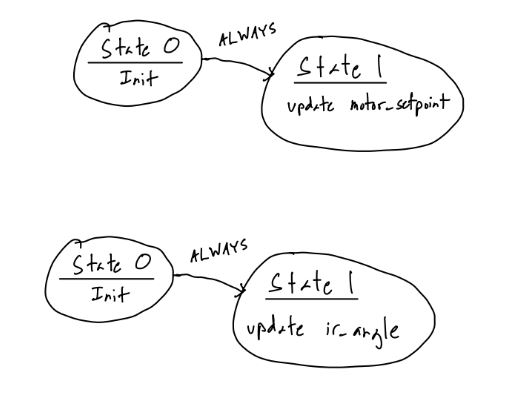 State 0
Init
ALWAYS
State 1
update motor_setpoint
State 0
Init
ALWAYS
State 1
update ir_angle